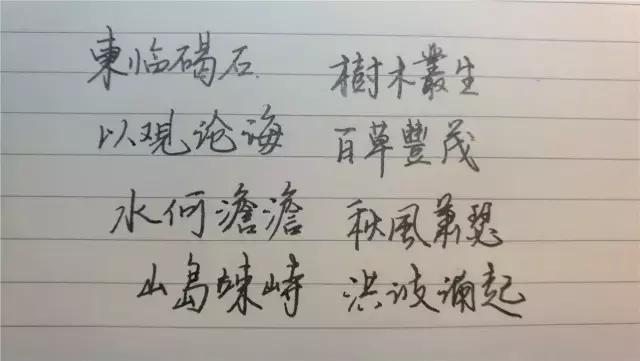 東临碣石 樹木叢生
以观论海 百草豐茂
水何澹澹 秋風萧瑟
山岛竦峙 洪波涌起